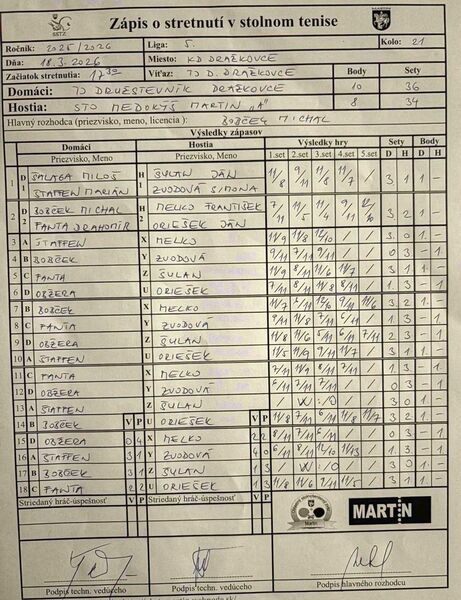 SSTZ
Zápis o stretnutí v stolnom tenise
MARTIN
Ročník: 2025/2026 Liga: 5. Kolo: 21
Dňa: 18.3.2026 Miesto: KD DRAŽKOVCE
Začiatok stretnutia: 17:30 Víťaz: TJ D. DRAŽKOVCE Body Sety
Domáci: TJ DRUŽSTEVNÍK DRAŽKOVCE 10 36
Hostia: STO MEDOKÝŠ MARTIN "A" 8 34
Hlavný rozhodca (priezvisko, meno, licencia): BOBČEK MICHAL
Výsledky zápasov
Domáci Hostia Výsledky hry Sety Body
Priezvisko, Meno Priezvisko, Meno 1.set 2.set 3.set 4.set 5.set D H D H
1 D1 ŠALAGA MILOŠ H1 ŠULAN JÁN 11/8 9/11 11/8 11/7 / 3 1 1 -
STAFFEN MARIÁN ZVODOVÁ SIMONA
2 D2 BOBČEK MICHAL H2 MELKO FRANTIŠEK 7/11 11/5 11/4 9/11 12/10 3 2 1 -
FANTA DRAHOMÍR ORIEŠEK JÁN
3 A STAFFEN X MELKO 11/9 11/8 12/10 / / 3 0 1 -
4 B BOBČEK Y ZVODOVÁ 9/11 7/11 9/11 / / 0 3 - 1
5 C FANTA Z ŠULAN 11/9 8/11 11/6 11/7 / 3 1 1 -
6 D OBŽERA U ORIEŠEK 7/11 8/11 11/8 8/11 / 1 3 - 1
7 B BOBČEK X MELKO 11/7 5/11 12/10 9/11 11/6 3 2 1 -
8 C FANTA Y ZVODOVÁ 9/11 11/8 7/11 6/11 / 1 3 - 1
9 D OBŽERA Z ŠULAN 11/8 11/6 5/11 6/11 7/11 2 3 - 1
10 A STAFFEN U ORIEŠEK 11/5 11/9 9/11 11/7 / 3 1 1 -
11 C FANTA X MELKO 7/11 11/9 8/11 7/11 / 1 3 - 1
12 D OBŽERA Y ZVODOVÁ 6/11 7/11 7/11 / / 0 3 - 1
13 A STAFFEN Z ŠULAN / W:O / 3 0 1 -
14 B BOBČEK V P U ORIEŠEK V P 11/8 7/11 6/11 11/8 11/7 3 2 1 -
15 D OBŽERA 0 4 X MELKO 2 2 8/11 7/11 / / 0 3 - 1
16 A STAFFEN 3 1 Y ZVODOVÁ 4 0 / 1 3 - 1
17 B BOBČEK 3 1 Z ŠULAN / W:O / 3 0 1 -
18 C FANTA 2 2 U ORIEŠEK 1 3 3 1 1 -
Striedaný hráč-úspešnosť V P Striedaný hráč-úspešnosť V P
Martin
MARTIN
Podpis techn. vedúceho Podpis techn. vedúceho Podpis hlavného rozhodcu